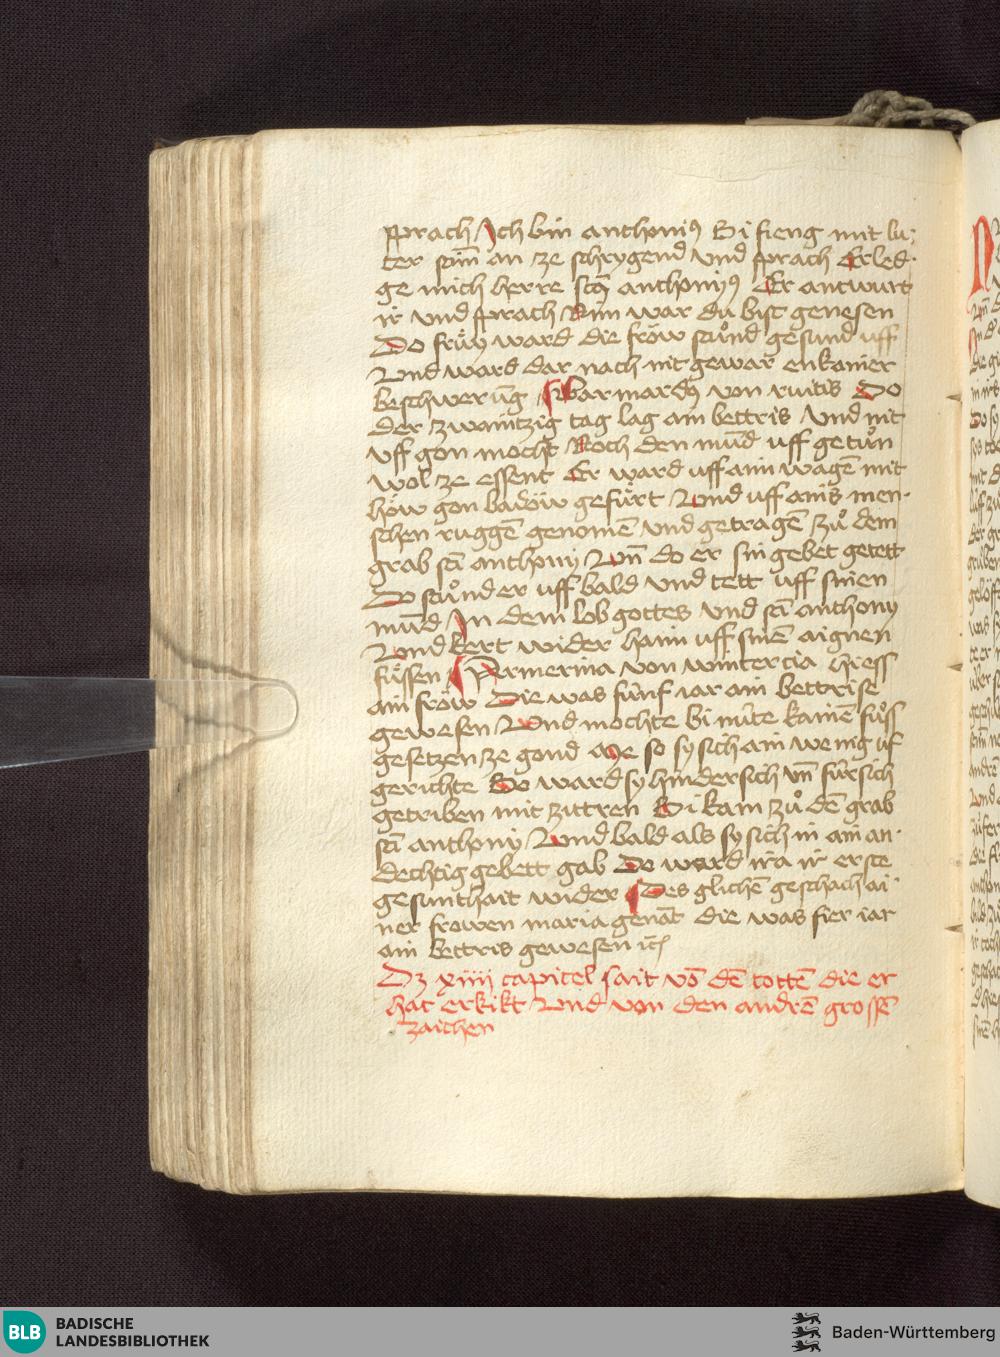 sprach Ich bin anthoni⁹ Si fieng mit lu-
ter stim̄ an ze schrygend vnd sprach Erled-
ge mich herre sct̄ anthoniy⁹ Er antwurt
ir vnd sprach Nim war du bist genesen
Do fruͤy ward die frow stuͦnd gesund uff
Vnd ward dar nach nit gewar enkainer
beschwerūg von Do
der zwaintzig tag lag am bettris Vnd nit
vff gon mocht Noch den mūd uff getuͦn
wol ze essent Er ward uff ain wagē mit
höw gon badöw gefürt Vnd uff ainis men-
schen ruggē genomē vnd getragē zuͦ dem
grab sct̄ anthony Vn̄ do er sin gebet getett
Do stuͦnd er uff bald vnd tett uff sinen
mūd In dem lob gottes vnd sct̄ anthony
Vnd kert wider haim uff sinē aignen
füssen Permerina von wintercia hiess
ain frow Die was fünf iar ain bettrise
gewesen Vnd mochte bi nüte kainē fuͦss
gesetzen ze gond Me so sy sich ain wenig uf
gerichte So ward sy hindersich vn̄ fürsich
getriben mit zittren Si kam zuͦ dē grab
sct̄ anthony Vnd bald als sy sich in ain an-
dechtig gebett gab Do ward ira ir erste
gesunthait wider Des glichē geschach ai-
ner frowen maria genāt die was fier iar
ain bettris gewesen
Dz xiiii capitel sait vō dē tottē die er
hat erkikt Vnd von den andrē grossē
zaichen
BLB
BADISCHE
LANDESBIBLIOTHEK
Baden-Württemberg